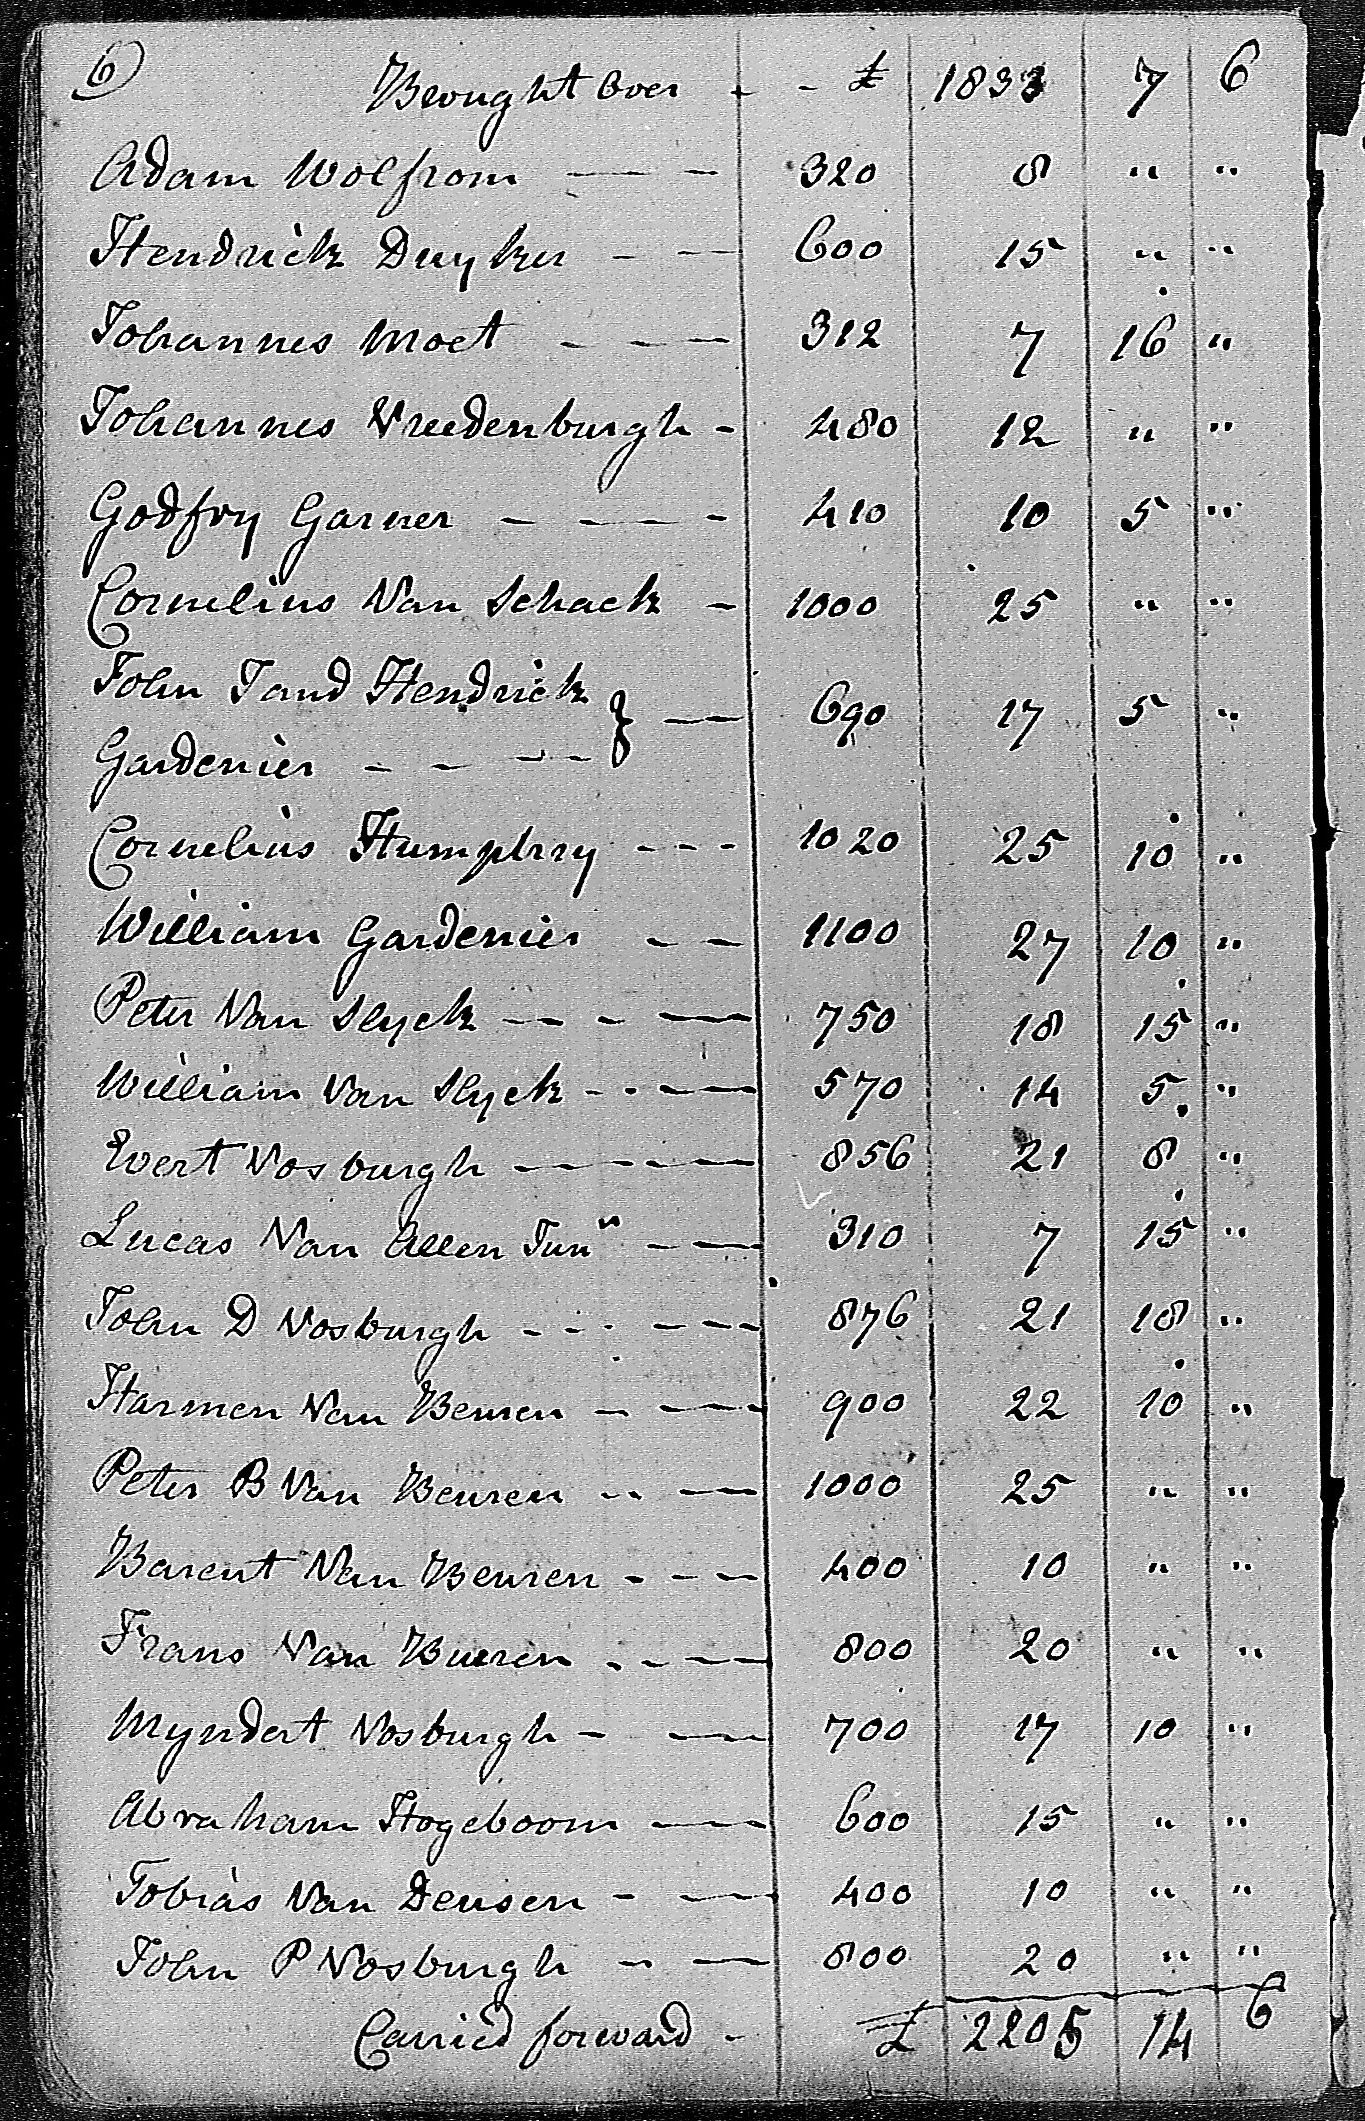 6)
Brought Over - - £ 1833 7 6
Adam Wolfrom — — 320 8 " "
Hendrick Duyker - — 600 15 " "
Johannes Moet — — — 312 7 16 "
Johannes Vreedenburgh - 480 12 " "
Godfry Garner — — — - 410 10 5 "
Cornelius Van Schack — 1000 25 " "
John J and Hendrick
Gardenier - - - - } — 690 17 5 "
Cornelius Humphry - - - 1020 25 10 "
William Gardenier — — 1100 27 10 "
Peter Van Slyck — - - — 750 18 15 "
William Van Slyck - - — — 570 14 5 "
Evert Vosburgh — — — — 856 21 8 "
Lucas Van Allen Junr — — 310 7 15 "
John D Vosburgh - - - — — 876 21 18 "
Harmen Van Beuren — — — 900 22 10 "
Peter B Van Beuren - - — 1000 25 " "
Barent Van Beuren - - - — 400 10 " "
Frans Van Bueren - - — — 800 20 " "
Myndert Vosburgh - — 700 17 10 "
Abraham Hogeboom — — 600 15 " "
Tobias Van Deusen - — 400 10 " "
John P Vosburgh - — 800 20 " "
Carried forward - £ 2205 14 6